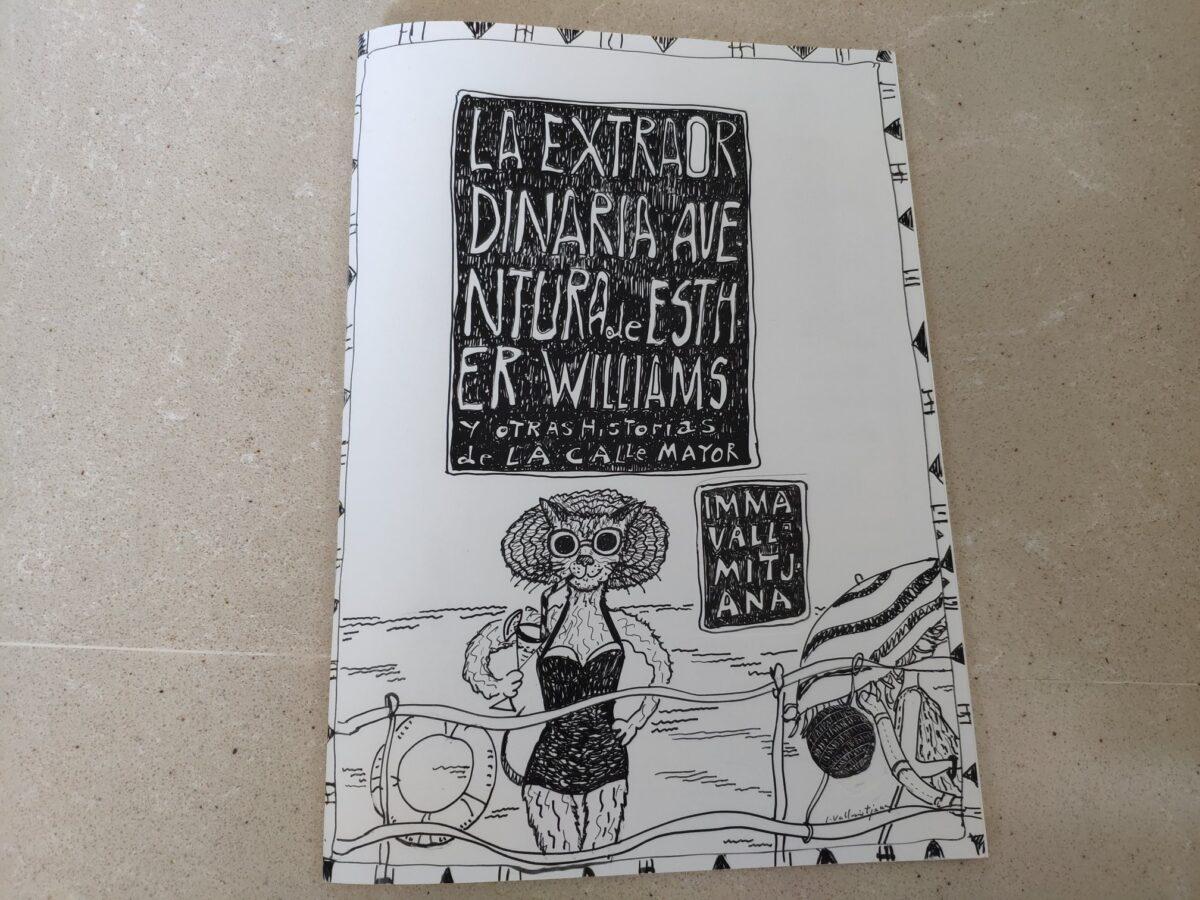 LA EXTRAOR
DINARIA AVE
NTURA de ESTH
ER WILLIAMS
Y OTRAS HiSTorias
de LA CALLe MAYOR
IMMA
VALL-
MITJ.
ANA
I. Vallmitjana